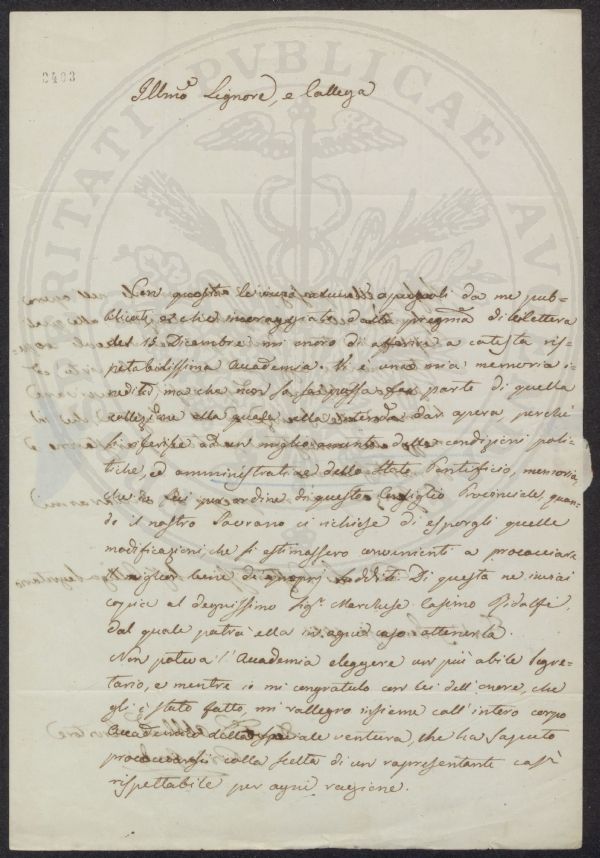 2403
PROSPERITATI PVBLICAE AVGENDAE
Illmo Signore, e Collega
Con questa le invio alcuni opuscoli da me pub-
blicati, e che incoraggiato dalla pregma di lei lettera
del 15 Dicembre mi onoro di offerire a cotesta ris-
pettabilissima Accademia. Vi è una mia memoria i-
nedita, ma che non so se possa far parte di quella
collezione alla quale ella intende dar opera perchè
si riferisce ad un miglioramento delle condizioni poli-
tiche, ed amministrative dello Stato Pontificio, memoria,
che io feci per ordine di questo Consiglio Provinciale quan-
do il nostro Sovrano ci richiese di esporgli quelle
modificazioni, che si estimassero convenienti a procacciare
il miglior bene di proprj sudditi. Di questa ne inviai
copia al degnissimo Sigr Marchese Cosimo Ridolfi,
dal quale potrà ella in ogni caso ottenerla.
Non poteva l'Accademia eleggere un più abile Segre-
tario, e mentre io mi congratulo con lei dell'onore, che
gli è stato fatto, mi rallegro insieme coll'intero corpo
Accademico della speciale ventura, che ha saputo
procacciarsi colla scelta di un rappresentante così
rispettabile per ogni ragione.